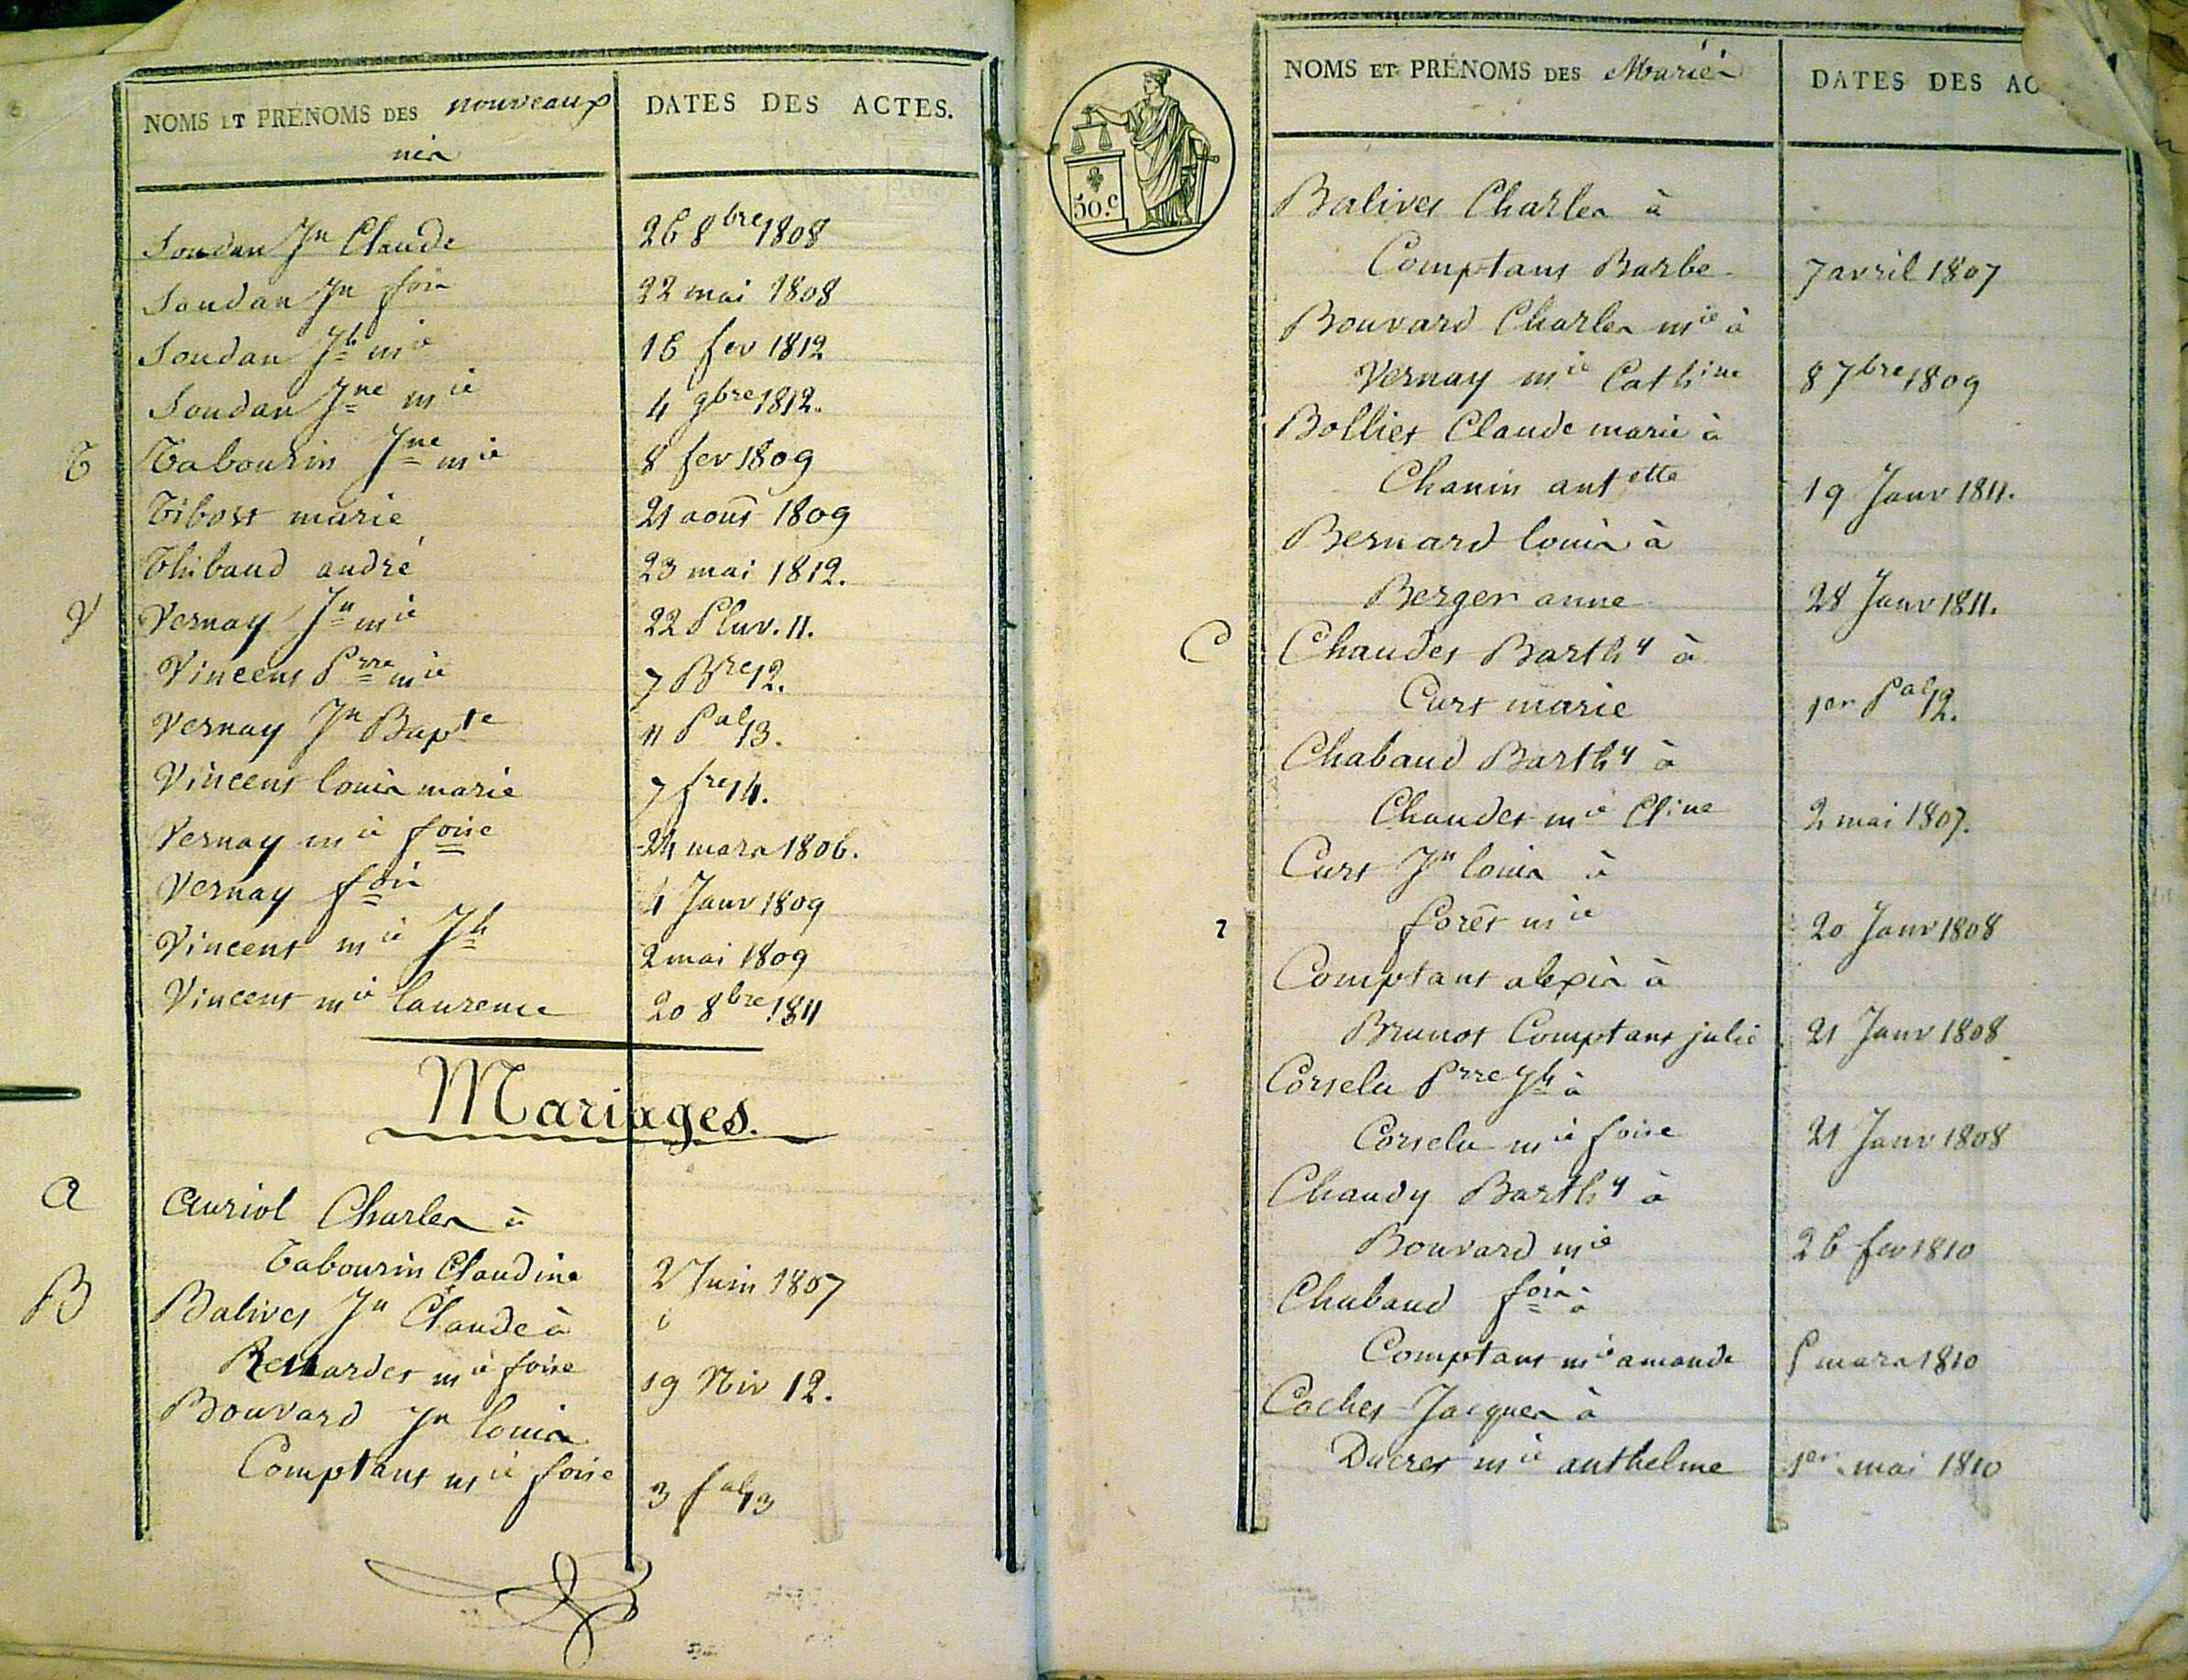 NOMS ET PRÉNOMS DES nouveaux
nés
DATES DES ACTES.
Soudan Jn Claude 26 8bre 1808
Soudan Jn fois 22 mai 1808
Soudan Jh mie 16 fev 1812
Soudan Jne mie 4 9bre 1812.
T Tabourin Jne mie 8 fev 1809
Tibost marie 21 aout 1809
Thibaud andré 23 mai 1812.
V Vernay Jn mie 22 Pluv. 11.
Vincent Prre mie 7 Bre 12.
Vernay Jn Bapte 11 Pal 13.
Vincent louis marie 7 fre 14.
Vernay mie foise 24 mars 1806.
Vernay fois 4 Janv 1809
Vincent mie Jh 2 mai 1809
Vincent mie laurence 20 8bre 1811
Mariages.
A Auriol Charles à
Tabourin Claudine 2 Juin 1807
B Balivet Jn Claude à
Renardet mie foise 19 Niv 12.
Bouvard Jn louis
Comptant mie foise 3 fal 13
50.c
NOMS ET PRÉNOMS DES Mariés
DATES DES AC
Balivet Charles à
Comptant Barbe 7 avril 1807
Bouvard Charles mie à
Vernay mie Cathine 8 7bre 1809
Bolliet Claude marie à
Chanin antette 19 Janv 1811.
Bernard louis à
Berger anne 28 Janv 1811.
C Chaudet Barthy à
Curt marie 1er Pal 12.
Chabaud Barthy à
Chaudet mie Cline 2 mai 1807.
Curt Jn louis à
forêt mie 20 Janv 1808
Comptant alexis à
Brunot Comptant julie 21 Janv 1808
Corselu Prre Jh à
Corselu mie foise 21 Janv 1808
Chaudy Barthy à
Bouvard mie 26 fev 1810
Chabaud fois à
Comptant mie amande mars 1810
Cochet Jacques à
Ducret mie anthelme 1er mai 1810